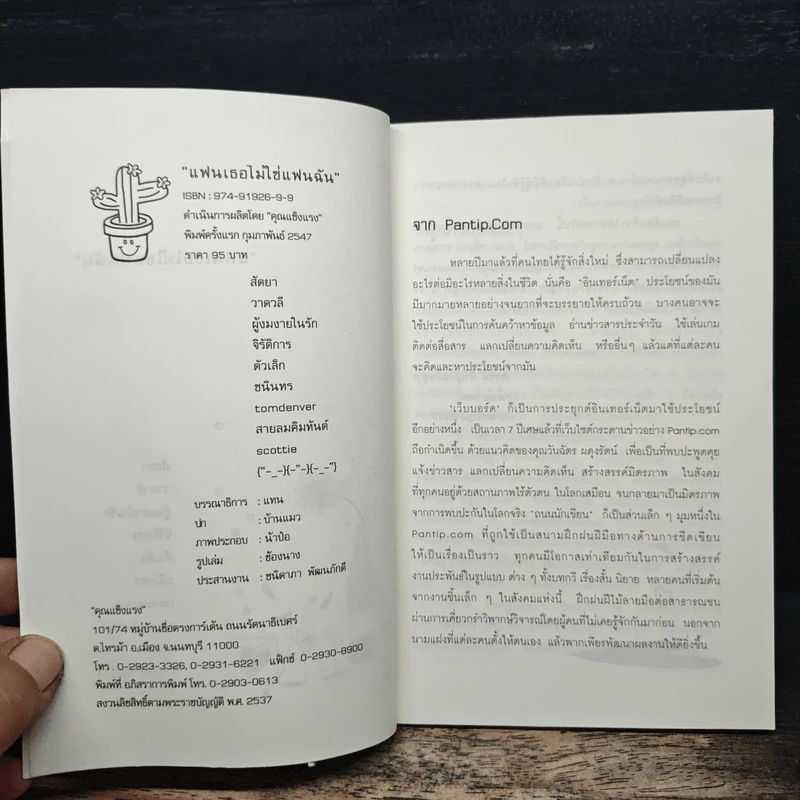 "แฟนเธอไม่ใช่แฟนฉัน"
ISBN : 974-91926-9-9
ดำเนินการผลิตโดย "คุณแข็งแรง"
พิมพ์ครั้งแรก กุมภาพันธ์ 2547
ราคา 95 บาท
สัตยา
วาดวลี
ผู้งมงายในรัก
จิรัติการ
ตัวเล็ก
ชนินทร
tomdenver
สายลมคิมหันต์
scottie
{"-_-}{-"-}{-_-"}
บรรณาธิการ : แทน
ปก : บ้านแมว
ภาพประกอบ : น้าป๋อ
รูปเล่ม : ช้องนาง
ประสานงาน : ชนิดาภา พัฒนภักดี
"คุณแข็งแรง"
101/74 หมู่บ้านชื่อตรงการ์เด้น ถนนรัตนาธิเบศร์
ต.ไทรม้า อ.เมือง จ.นนทบุรี 11000
โทร . 0-2923-3326, 0-2931-6221 แฟ็กซ์ 0-2930-8900
พิมพ์ที่ อภิสราการพิมพ์ โทร. 0-2903-0613
สงวนลิขสิทธิ์ตามพระราชบัญญัติ พ.ศ. 2537
จาก Pantip.Com
หลายปีมาแล้วที่คนไทยได้รู้จักสิ่งใหม่ ซึ่งสามารถเปลี่ยนแปลง
อะไรต่อมิอะไรหลายสิ่งในชีวิต นั่นคือ "อินเทอร์เน็ต" ประโยชน์ของมัน
มีมากมายหลายอย่างจนยากที่จะบรรยายให้ครบถ้วน บางคนอาจจะ
ใช้ประโยชน์ในการค้นคว้าหาข้อมูล อ่านข่าวสารประจำวัน ใช้เล่นเกม
ติดต่อสื่อสาร แลกเปลี่ยนความคิดเห็น หรืออื่นๆ แล้วแต่ที่แต่ละคน
จะคิดและหาประโยชน์จากมัน
"เว็บบอร์ด" ก็เป็นการประยุกต์อินเทอร์เน็ตมาใช้ประโยชน์
อีกอย่างหนึ่ง เป็นเวลา 7 ปีเศษแล้วที่เว็บไซต์กระดานข่าวอย่าง Pantip.com
ถือกำเนิดขึ้น ด้วยแนวคิดของคุณวันฉัตร ผดุงรัตน์ เพื่อเป็นที่พบปะพูดคุย
แจ้งข่าวสาร แลกเปลี่ยนความคิดเห็น สร้างสรรค์มิตรภาพ ในสังคม
ที่ทุกคนอยู่ด้วยสถานภาพไร้ตัวตน ในโลกเสมือน จนกลายมาเป็นมิตรภาพ
จากการพบปะกันในโลกจริง "ถนนนักเขียน" ก็เป็นส่วนเล็ก ๆ มุมหนึ่งใน
Pantip.com ที่ถูกใช้เป็นสนามฝึกฝนฝีมือทางด้านการขีดเขียน
ให้เป็นเรื่องเป็นราว ทุกคนมีโอกาสเท่าเทียมกันในการสร้างสรรค์
งานประพันธ์ในรูปแบบ ต่าง ๆ ทั้งบทกวี เรื่องสั้น นิยาย หลายคนที่เริ่มต้น
จากงานชิ้นเล็ก ๆ ในสังคมแห่งนี้ ฝึกฝนฝีไม้ลายมือต่อสาธารณชน
ผ่านการเคี่ยวกรำวิพากษ์วิจารณ์โดยผู้คนที่ไม่เคยรู้จักกันมาก่อน นอกจาก
นามแฝงที่แต่ละคนตั้งให้ตนเอง แล้วพากเพียรพัฒนาผลงานให้ดียิ่งขึ้น